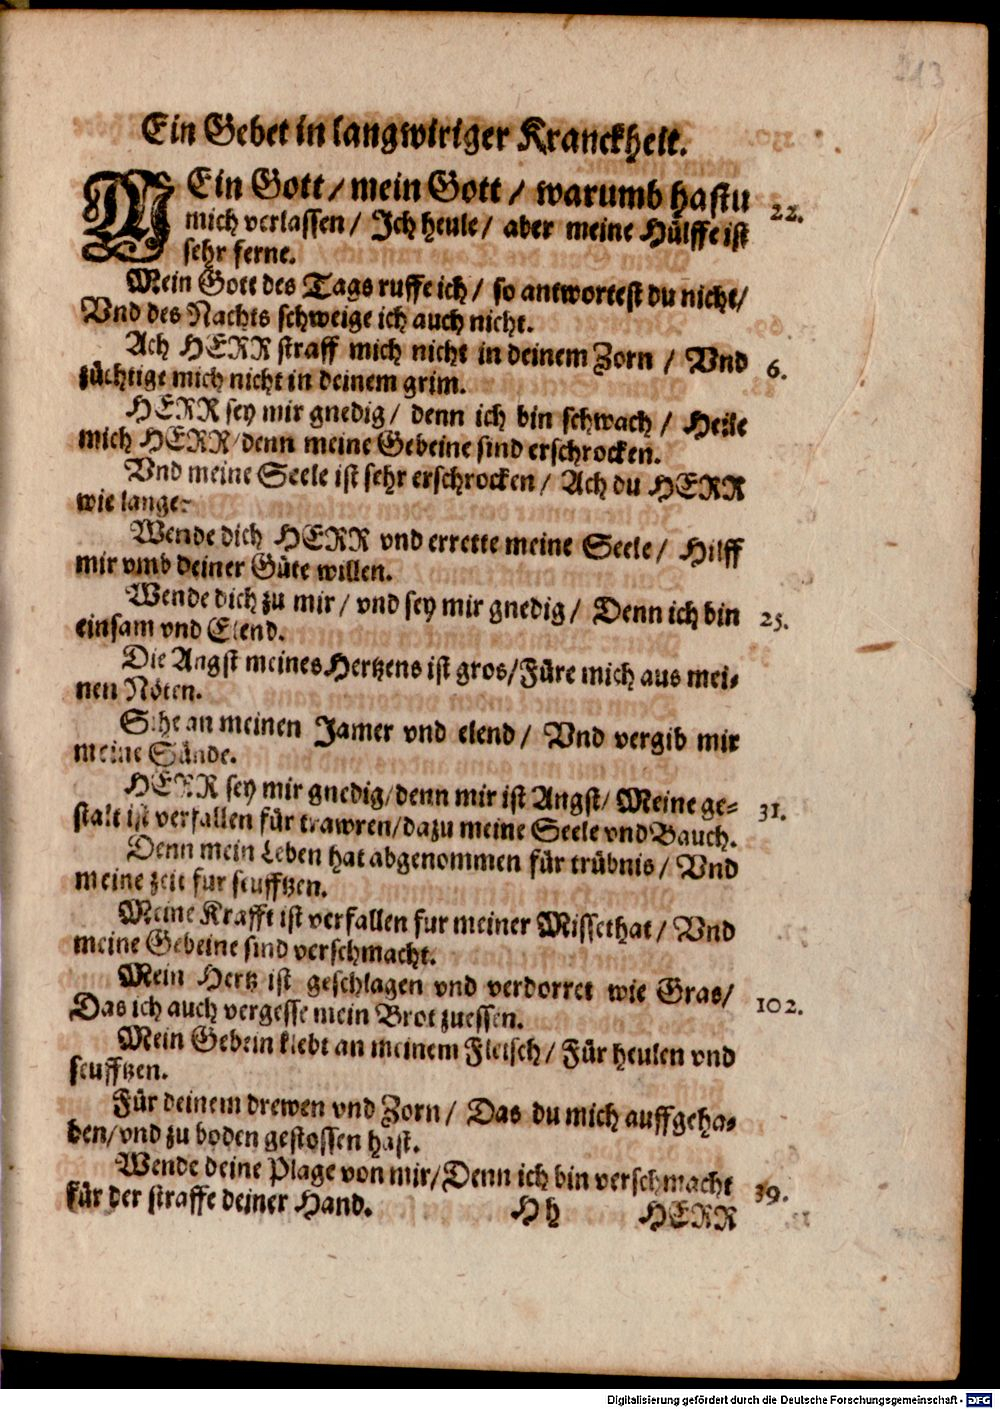 213
Ein Gebet in langwiriger Kranckheit.
MEin Gott / mein Gott / warumb hastu 22.
mich verlassen / Ich heule / aber meine Hülffe ist
sehr ferne.
Mein Gott des Tags ruffe ich / so antwortest du nicht /
Vnd des Nachts schweige ich auch nicht.
Ach HERR straff mich nicht in deinem Zorn / Vnd 6.
züchtige mich nicht in deinem grim.
HERR sey mir gnedig / denn ich bin schwach / Heile
mich HERR / denn meine Gebeine sind erschrocken.
Vnd meine Seele ist sehr erschrocken / Ach du HERR
wie lange?
Wende dich HERR vnd errette meine Seele / Hilff
mir vmb deiner Güte willen.
Wende dich zu mir / vnd sey mir gnedig / Denn ich bin 25.
einsam vnd Elend.
Die Angst meines Hertzens ist gros / Füre mich aus mei-
nen Nöten.
Sihe an meinen Jamer vnd elend / Vnd vergib mir
meine Sünde.
HERR sey mir gnedig / denn mir ist Angst / Meine ge- 31.
stalt ist verfallen für trawren / dazu meine Seele vnd Bauch.
Denn mein Leben hat abgenommen für trübnis / Vnd
meine zeit fur seufftzen.
Meine Krafft ist verfallen fur meiner Missethat / Vnd
meine Gebeine sind verschmacht.
Mein Hertz ist geschlagen vnd verdorret wie Gras / 102.
Das ich auch vergesse mein Brot zuessen.
Mein Gebein klebt an meinem Fleisch / Für heulen vnd
seufftzen.
Für deinem drewen vnd Zorn / Das du mich auffgeha-
ben / vnd zu boden gestossen hast.
Wende deine Plage von mir / Denn ich bin verschmacht 39.
für der straffe deiner Hand. Hh HERR
Digitalisierung gefördert durch die Deutsche Forschungsgemeinschaft - DFG